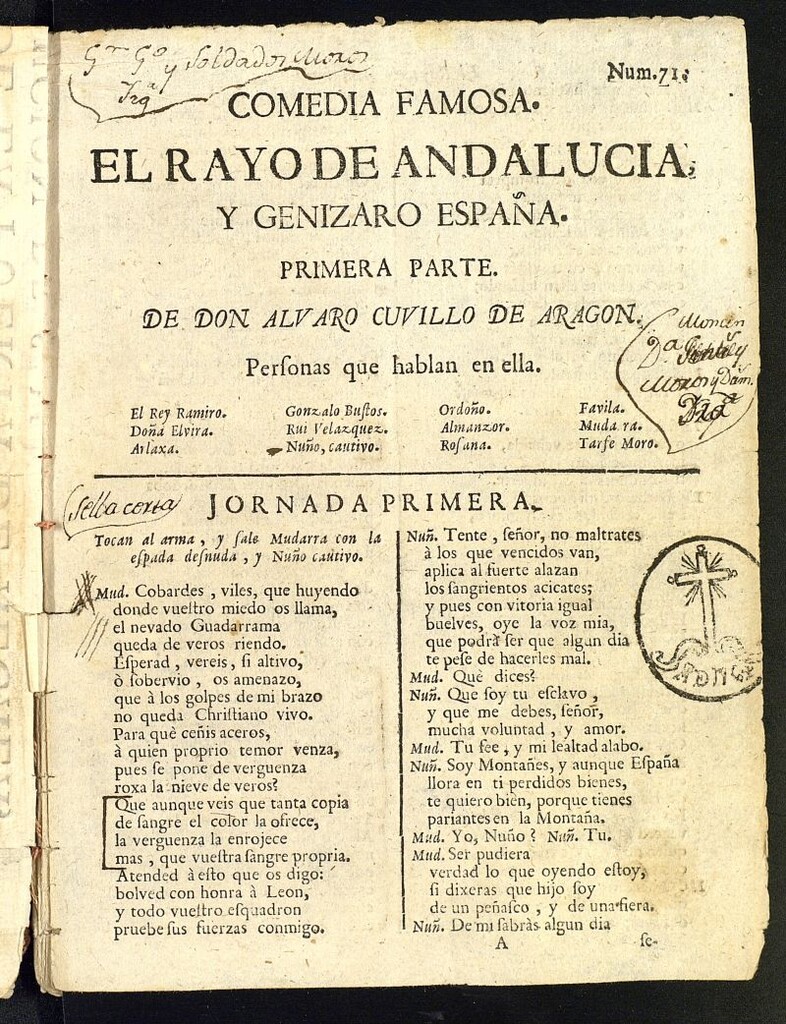 Gn Go y Soldados Moros
Izqª
Num.71.
COMEDIA FAMOSA.
EL RAYO DE ANDALUCIA,
Y GENIZARO ESPAÑA.
PRIMERA PARTE.
DE DON ALVARO CUVILLO DE ARAGON.
Perſonas que hablan en ella.
El Rey Ramiro. Gonzalo Buſtos. Ordoño. Favila.
Doña Elvira. Rui Velazquez. Almanzor. Mudara.
Arlaxa. Nuño, cautivo. Roſana. Tarfe Moro.
Sella corta
JORNADA PRIMERA.
Tocan al arma, y ſale Mudarra con la
eſpada deſnuda, y Nuño cautivo.
Mud. Cobardes, viles, que huyendo
donde vueſtro miedo os llama,
el nevado Guadarrama
queda de veros riendo.
Eſperad, vereis, ſi altivo,
ò ſobervio, os amenazo,
que à los golpes de mi brazo
no queda Chriſtiano vivo.
Para què ceñis aceros,
à quien proprio temor venza,
pues ſe pone de verguenza
roxa la nieve de veros?
Que aunque veis que tanta copia
de ſangre el color la ofrece,
la verguenza la enrojece
mas, que vueſtra ſangre propria.
Atended à eſto que os digo:
bolved con honra à Leon,
y todo vueſtro eſquadron
pruebe ſus fuerzas conmigo.
Nuñ. Tente, ſeñor, no maltrates
à los que vencidos van,
aplica al fuerte alazan
los ſangrientos acicates;
y pues con vitoria igual
buelves, oye la voz mia,
que podrà ſer que algun dia
te peſe de hacerles mal.
Mud. Què dices?
Nuñ. Que ſoy tu eſclavo,
y que me debes, ſeñor,
mucha voluntad, y amor.
Mud. Tu fee, y mi lealtad alabo.
Nuñ. Soy Montañes, y aunque Eſpaña
llora en ti perdidos bienes,
te quiero bien, porque tienes
pariantes en la Montaña.
Mud. Yo, Nuño? Nuñ. Tu.
Mud. Ser pudiera
verdad lo que oyendo eſtoy,
ſi dixeras que hijo ſoy
de un peñaſco, y de una fiera.
Nuñ. De mi ſabràs algun dia
A ſe-